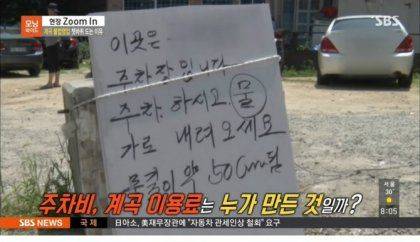 모닝와이드
현장 Zoom In
계곡 불법영업 쳇바퀴 도는 이유
SBS
이곳은
주차장 입니다
주차 하시고 물
가로 내려 오세요
50Cm됨
주차비, 계곡 이용료는 누가 만든 것일까?
서울
30°
8:05
SBS NEWS
국 제
日아소, 美재무장관에 "자동차 관세인상 철회" 요구